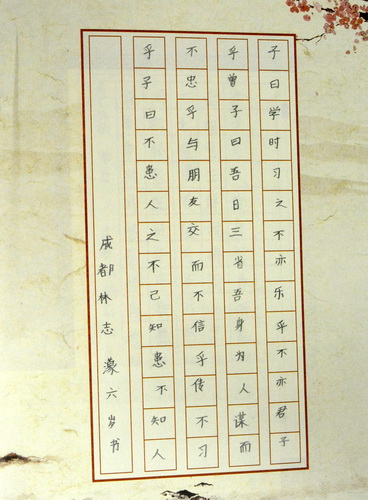 子曰学时习之不亦乐乎不亦君子
乎曾子曰吾日三省吾身为人谋而
不忠乎与朋友交而不信乎传不习
乎子曰不患人之不己知患不知人
成都林志濛六岁书